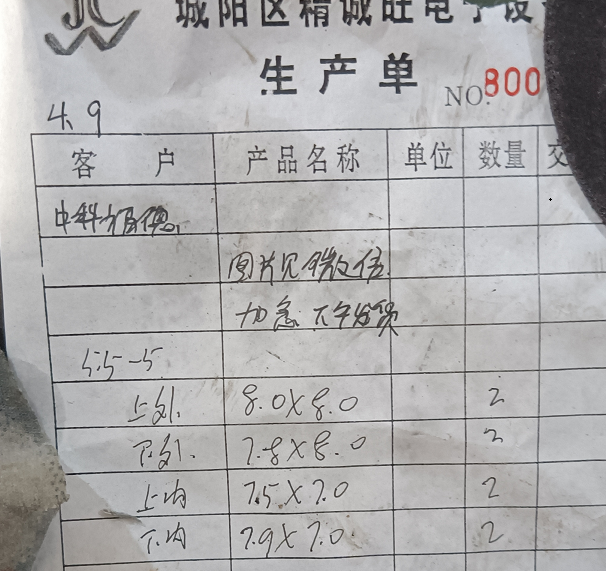 城阳区精诚旺电子设
生产单
NO.800
4.9
客户 产品名称 单位 数量 交
中科
图片见微信
加急 下午发货
5.5-5
上外 8.0X8.0 2
下外 7.8X8.0 2
上内 7.5X7.0 2
下内 7.9X7.0 2